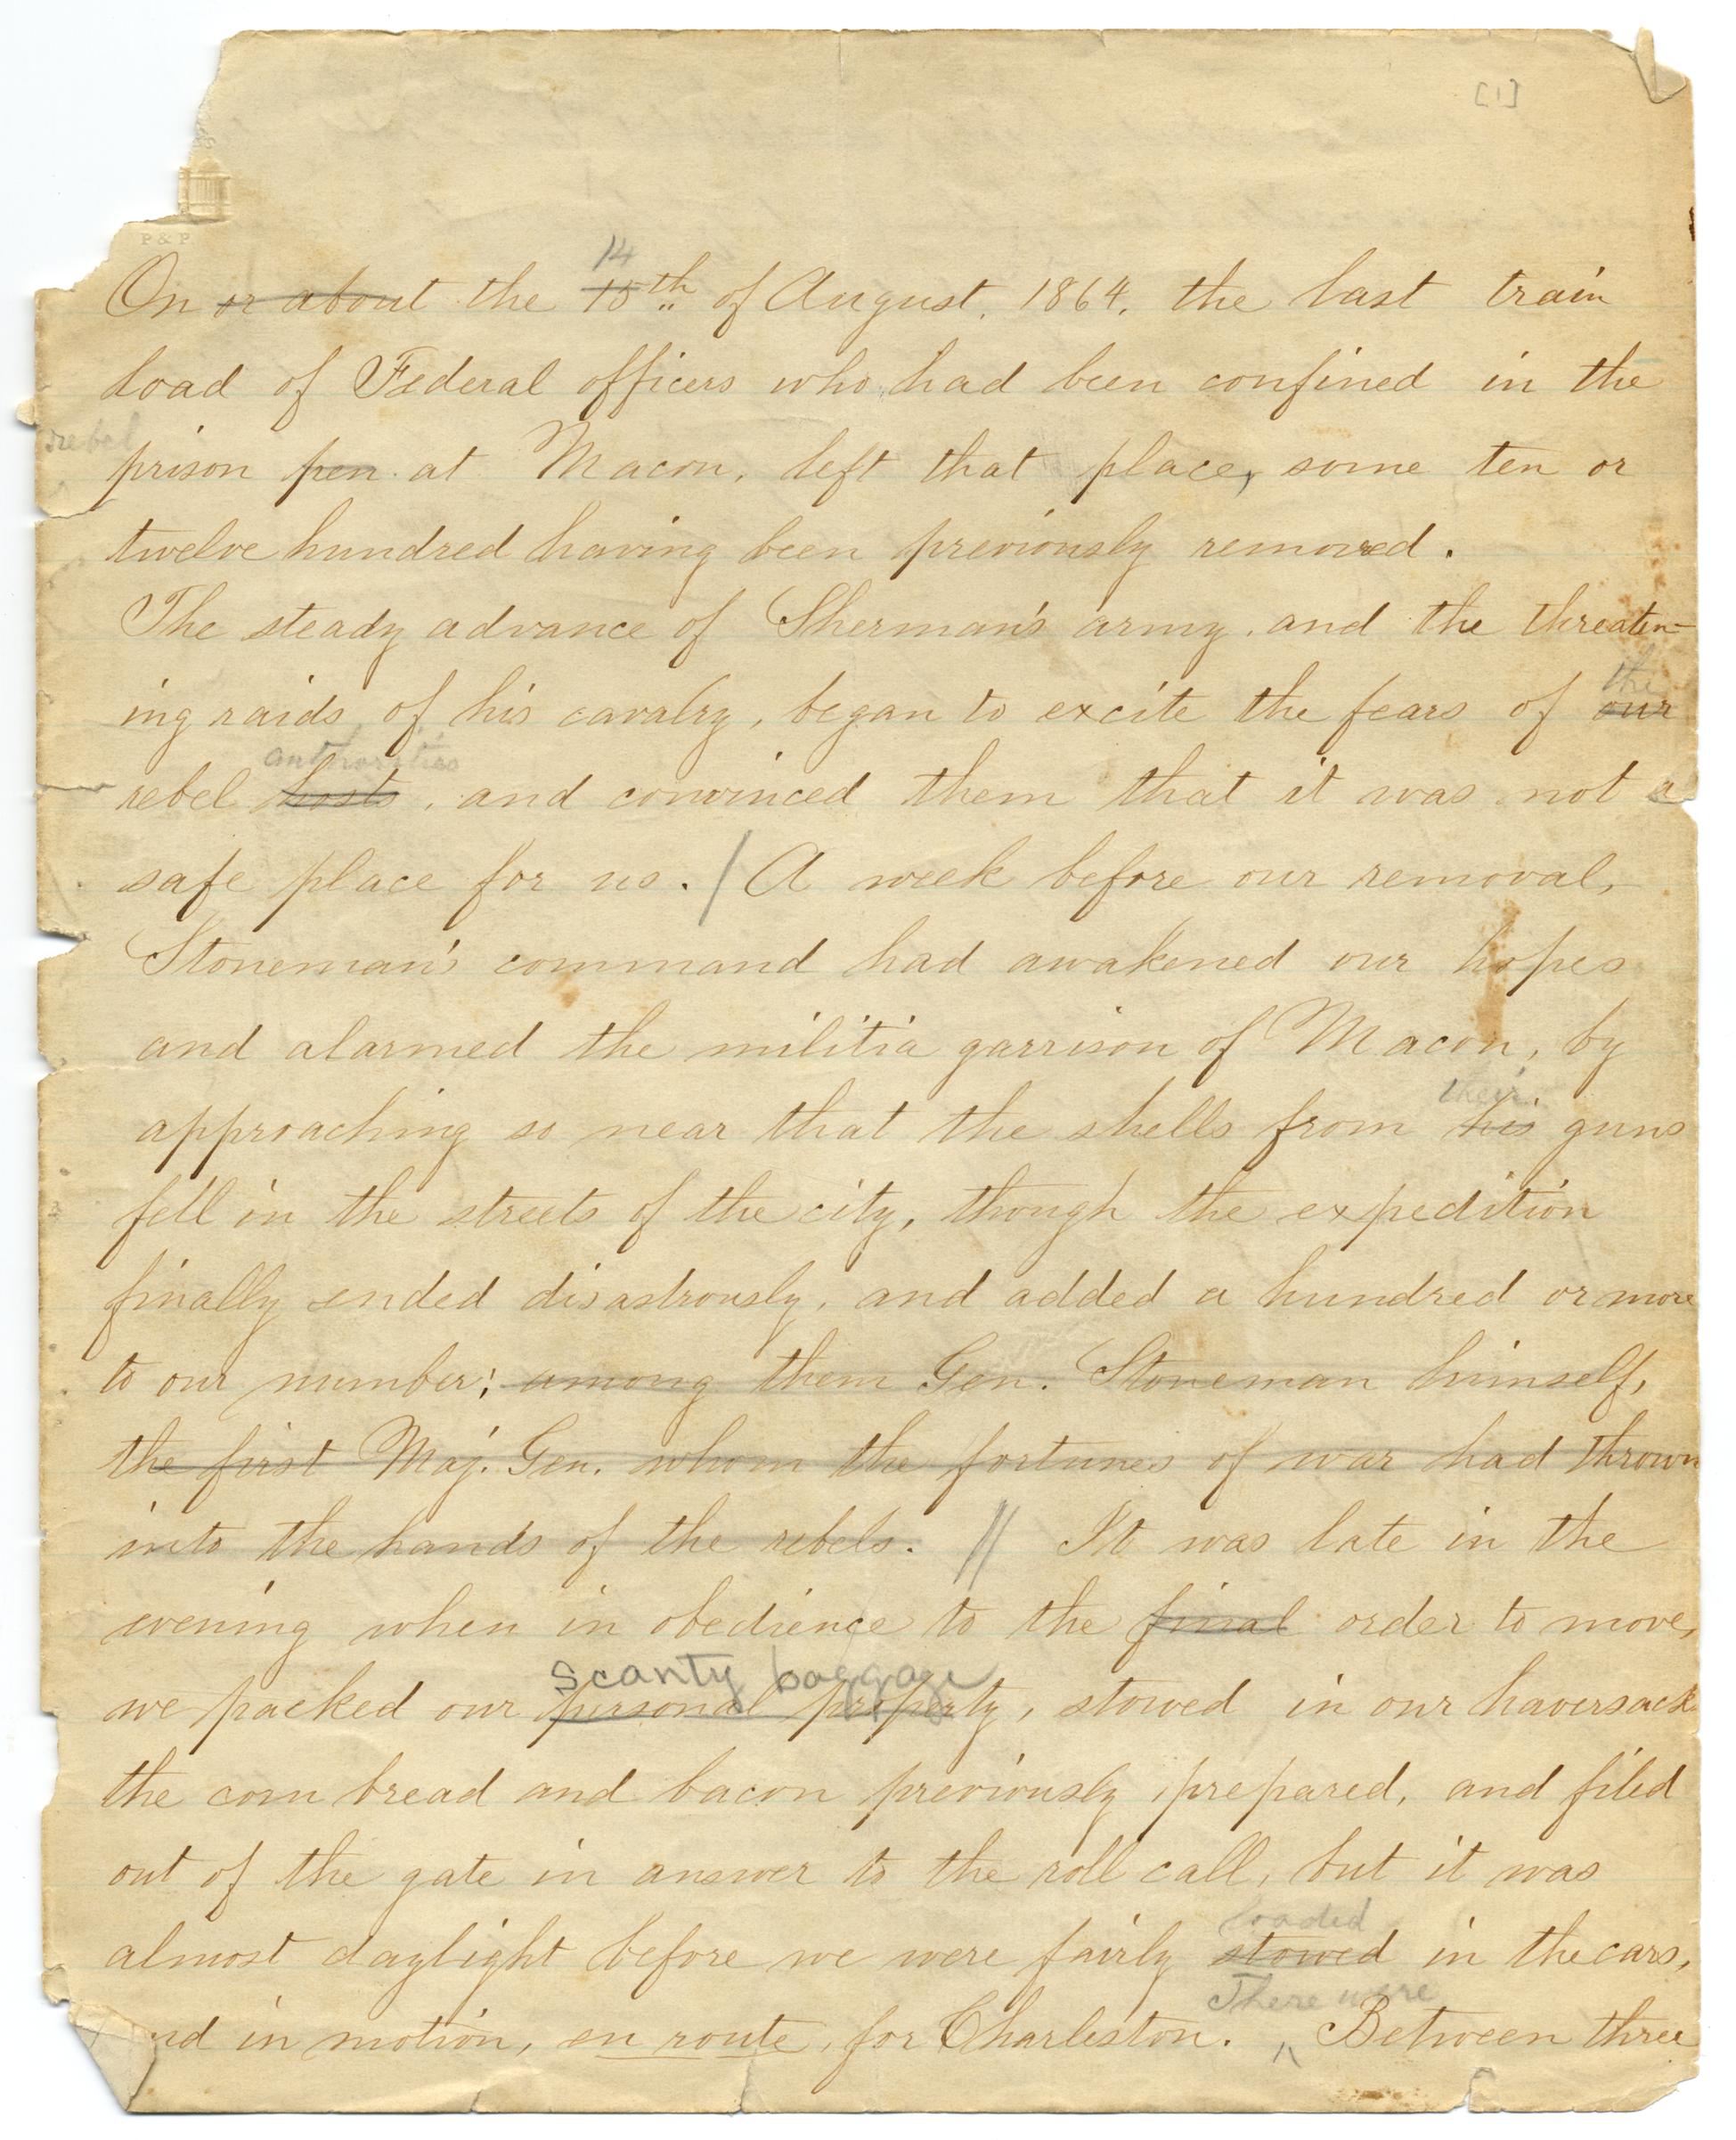 [1]
P & P
14
On or about the 15th of August, 1864, the last train
load of Federal officers who had been confined in the
rebel
prison pen at Macon, left that place, some ten or
twelve hundred having been previously removed.
The steady advance of Sherman's army, and the threaten-
ing raids of his cavalry, began to excite the fears of our
the
authorities
rebel hosts, and convinced them that it was not a
safe place for us. / A week before our removal,
Stoneman's command had awakened our hopes
and alarmed the militia garrison of Macon, by
their
approaching so near that the shells from his guns
fell in the streets of the city, though the expedition
finally ended disastrously, and added a hundred or more
to our number; among them Gen. Stoneman himself,
the first Maj. Gen. whom the fortunes of war had thrown
into the hands of the rebels. // It was late in the
evening when in obedience to the final order to move,
scanty baggage
we packed our personal property, stowed in our haversack
the corn bread and bacon previously prepared, and filed
out of the gate in answer to the roll call, but it was
loaded
almost daylight before we were fairly stowed in the cars,
There were
nd in motion, en route, for Charleston. ^ Between three